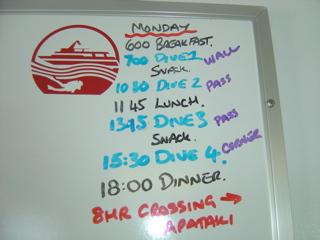 MONDAY
600 BREAKFAST.
700 DIVE 1 WALL
SNACK.
1030 DIVE 2 PASS
1145 LUNCH.
1345 DIVE 3 PASS
SNACK.
15:30 DIVE 4. CORNER
18:00 DINNER.
8HR CROSSING →
APATAKI